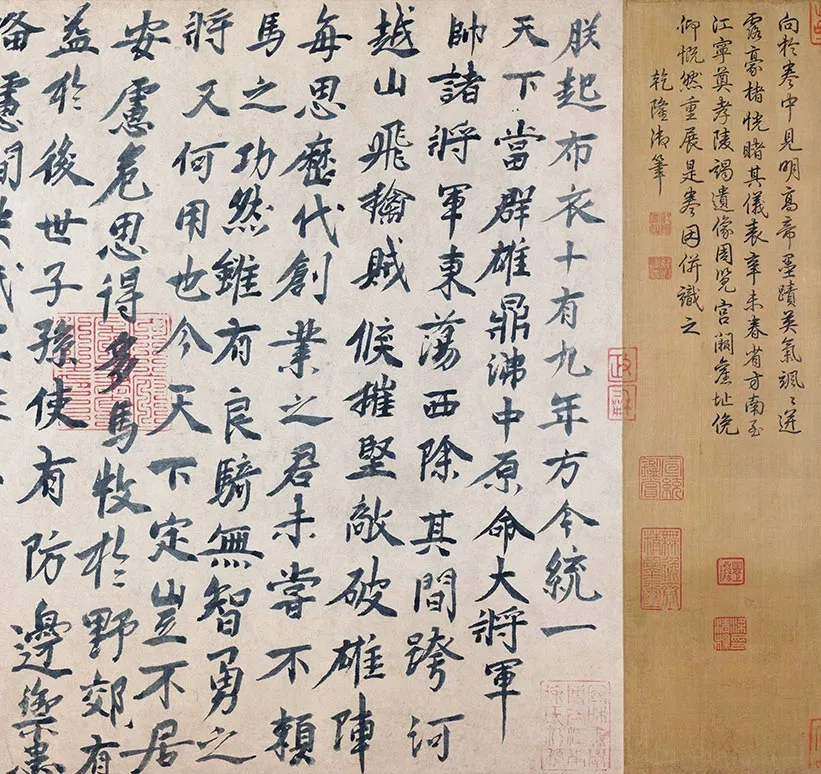 向於卷中見明高帝墨蹟英氣颯〻迸
露豪楮恍睹其儀表辛未春省方南至
江寧奠孝陵謁遺像周覽宮闕舊址俛
仰慨然重展是卷因併識之
乾隆御筆
宣統鑑賞
無逸齋精鑒璽
朕起布衣十有九年方今統一
天下當群雄鼎沸中原命大將軍
帥諸將軍東蕩西除其間跨河
越山飛擒賊候摧堅敵破雄陣
每思歷代創業之君未嘗不賴
馬之功然雖有良騎無智勇之
將又何用也今天下定豈不居
安慮危思得多馬牧於野郊有
益於後世子孫使有防邊禦患
備慮間